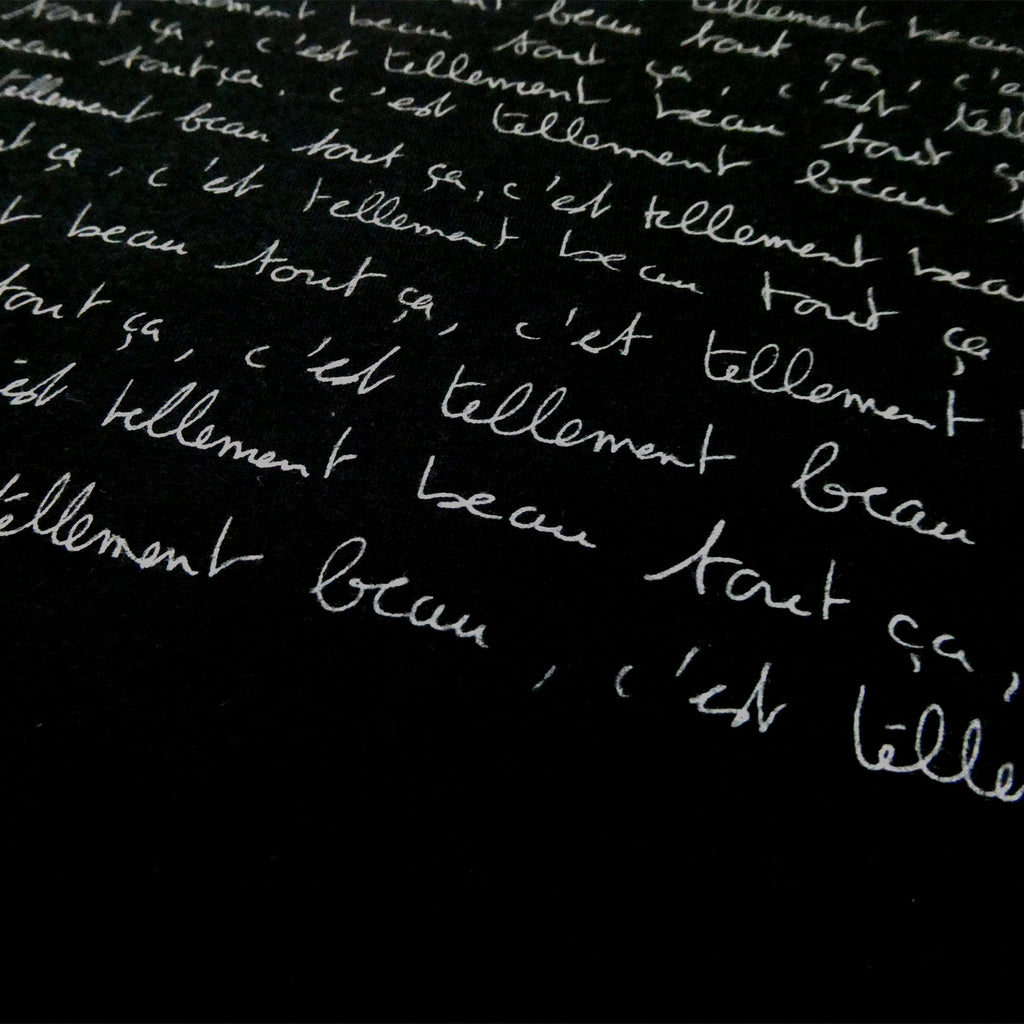 tellement beau
beau tout ça, c'e
ement beau tout ça, c'est tell
tout ça, c'est tellement beau tout ç
eau tout ça. c'est tellement beau t
tellement beau tout ça, c'est tellement beau
ut ça, c'est tellement beau tout ça
t beau tout ça, c'est tellement
tout ça, c'est tellement beau
est tellement beau tout ça,
tellement beau, c'est telle